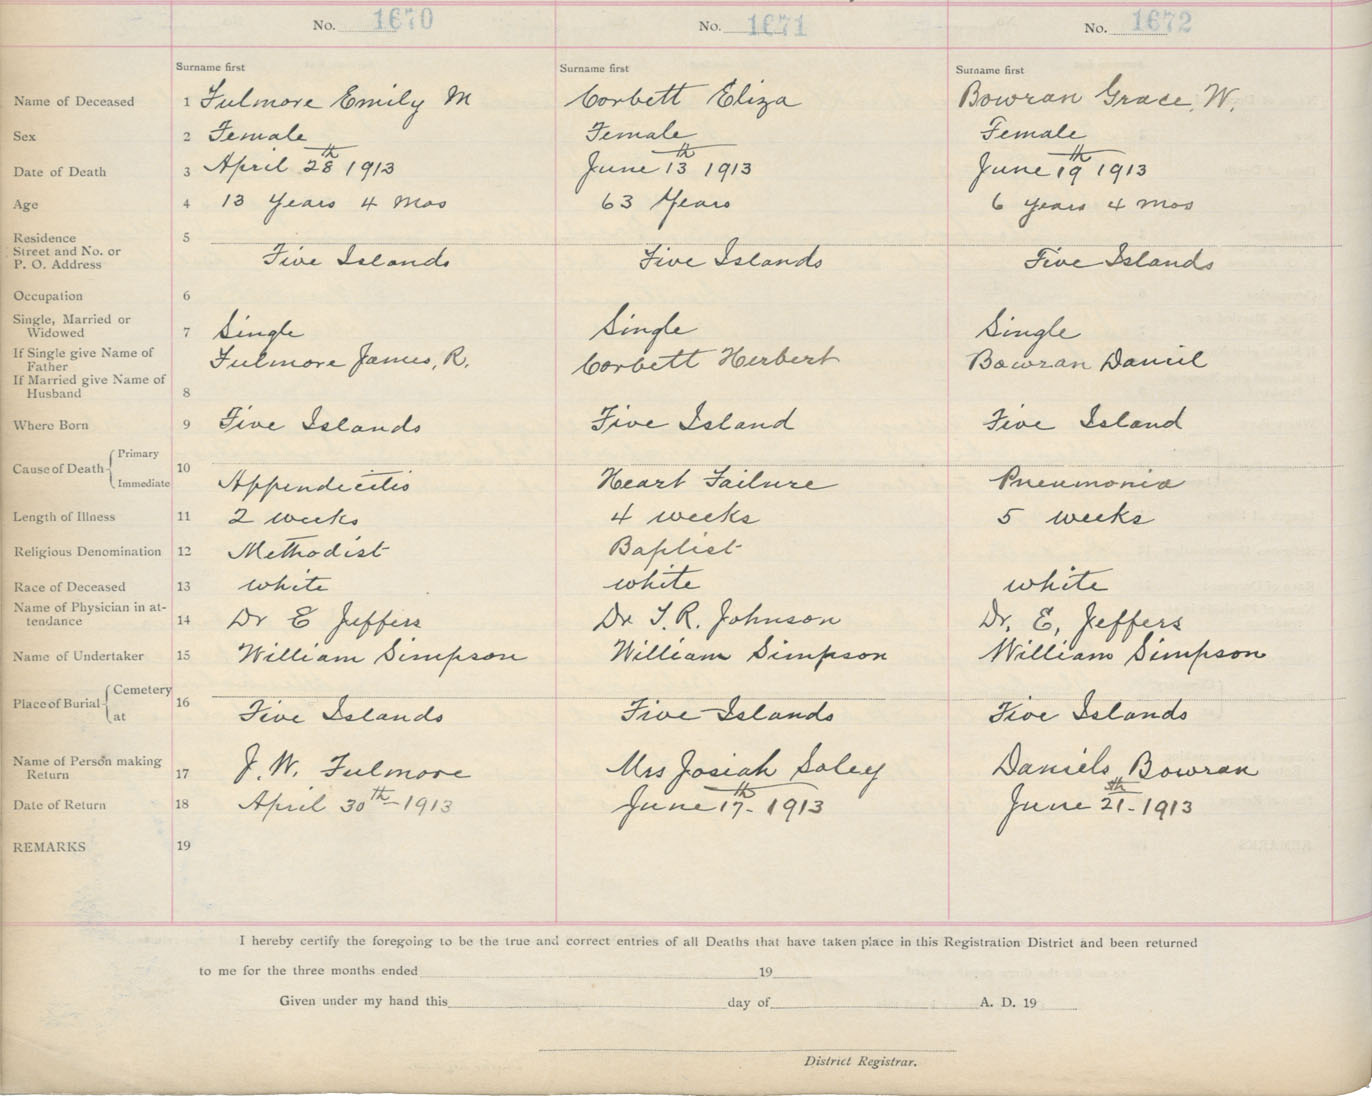 No. 1670 No. 1671 No. 1672
Surname first Surname first Surname first
Name of Deceased 1 Fulmore Emily M Corbett Eliza Bowran Grace, W.
Sex 2 Female Female Female
Date of Death 3 April 28th 1913 June 13th 1913 June 19th 1913
Age 4 13 Years 4 mos 63 Years 6 years 4 mos
Residence 5
Street and No. or
P. O. Address Five Islands Five Islands Five Islands
Occupation 6
Single, Married or
Widowed 7 Single Single Single
If Single give Name of
Father Fulmore James, R. Corbett Herbert Bowran Daniel
If Married give Name of
Husband 8
Where Born 9 Five Islands Five Island Five Island
Cause of Death Primary 10
Immediate Appendicitis Heart Failure Pneumonia
Length of Illness 11 2 weeks 4 weeks 5 weeks
Religious Denomination 12 Methodist Baptist
Race of Deceased 13 white white white
Name of Physician in at-
tendance 14 Dr E Jeffers Dr T. R. Johnson Dr. E, Jeffers
Name of Undertaker 15 William Simpson William Simpson William Simpson
Place of Burial Cemetery 16
at Five Islands Five Islands Five Islands
Name of Person making
Return 17 J. W. Fulmore Mrs Josiah Soley Daniels Bowran
Date of Return 18 April 30th 1913 June 17th - 1913 June 21th - 1913
REMARKS 19
I hereby certify the foregoing to be the true and correct entries of all Deaths that have taken place in this Registration District and been returned
to me for the three months ended 19
Given under my hand this day of A. D. 19
District Registrar.